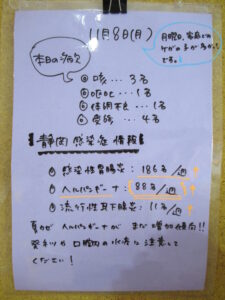 11月8日(月)
月曜日、家庭での
ケガの子が多かった
です。
本日の病欠
咳…3名
嘔吐…1名
体調不良…1名
発熱…4名
静岡 感染症情報
感染性胃腸炎:186名/週↑
ヘルパンギーナ:88名/週↑
流行性耳下腺炎:11名/週↑
夏かぜ ヘルパンギーナが まだ増加傾向!!
発ネツや口腔内の水疱に注意して
ください!